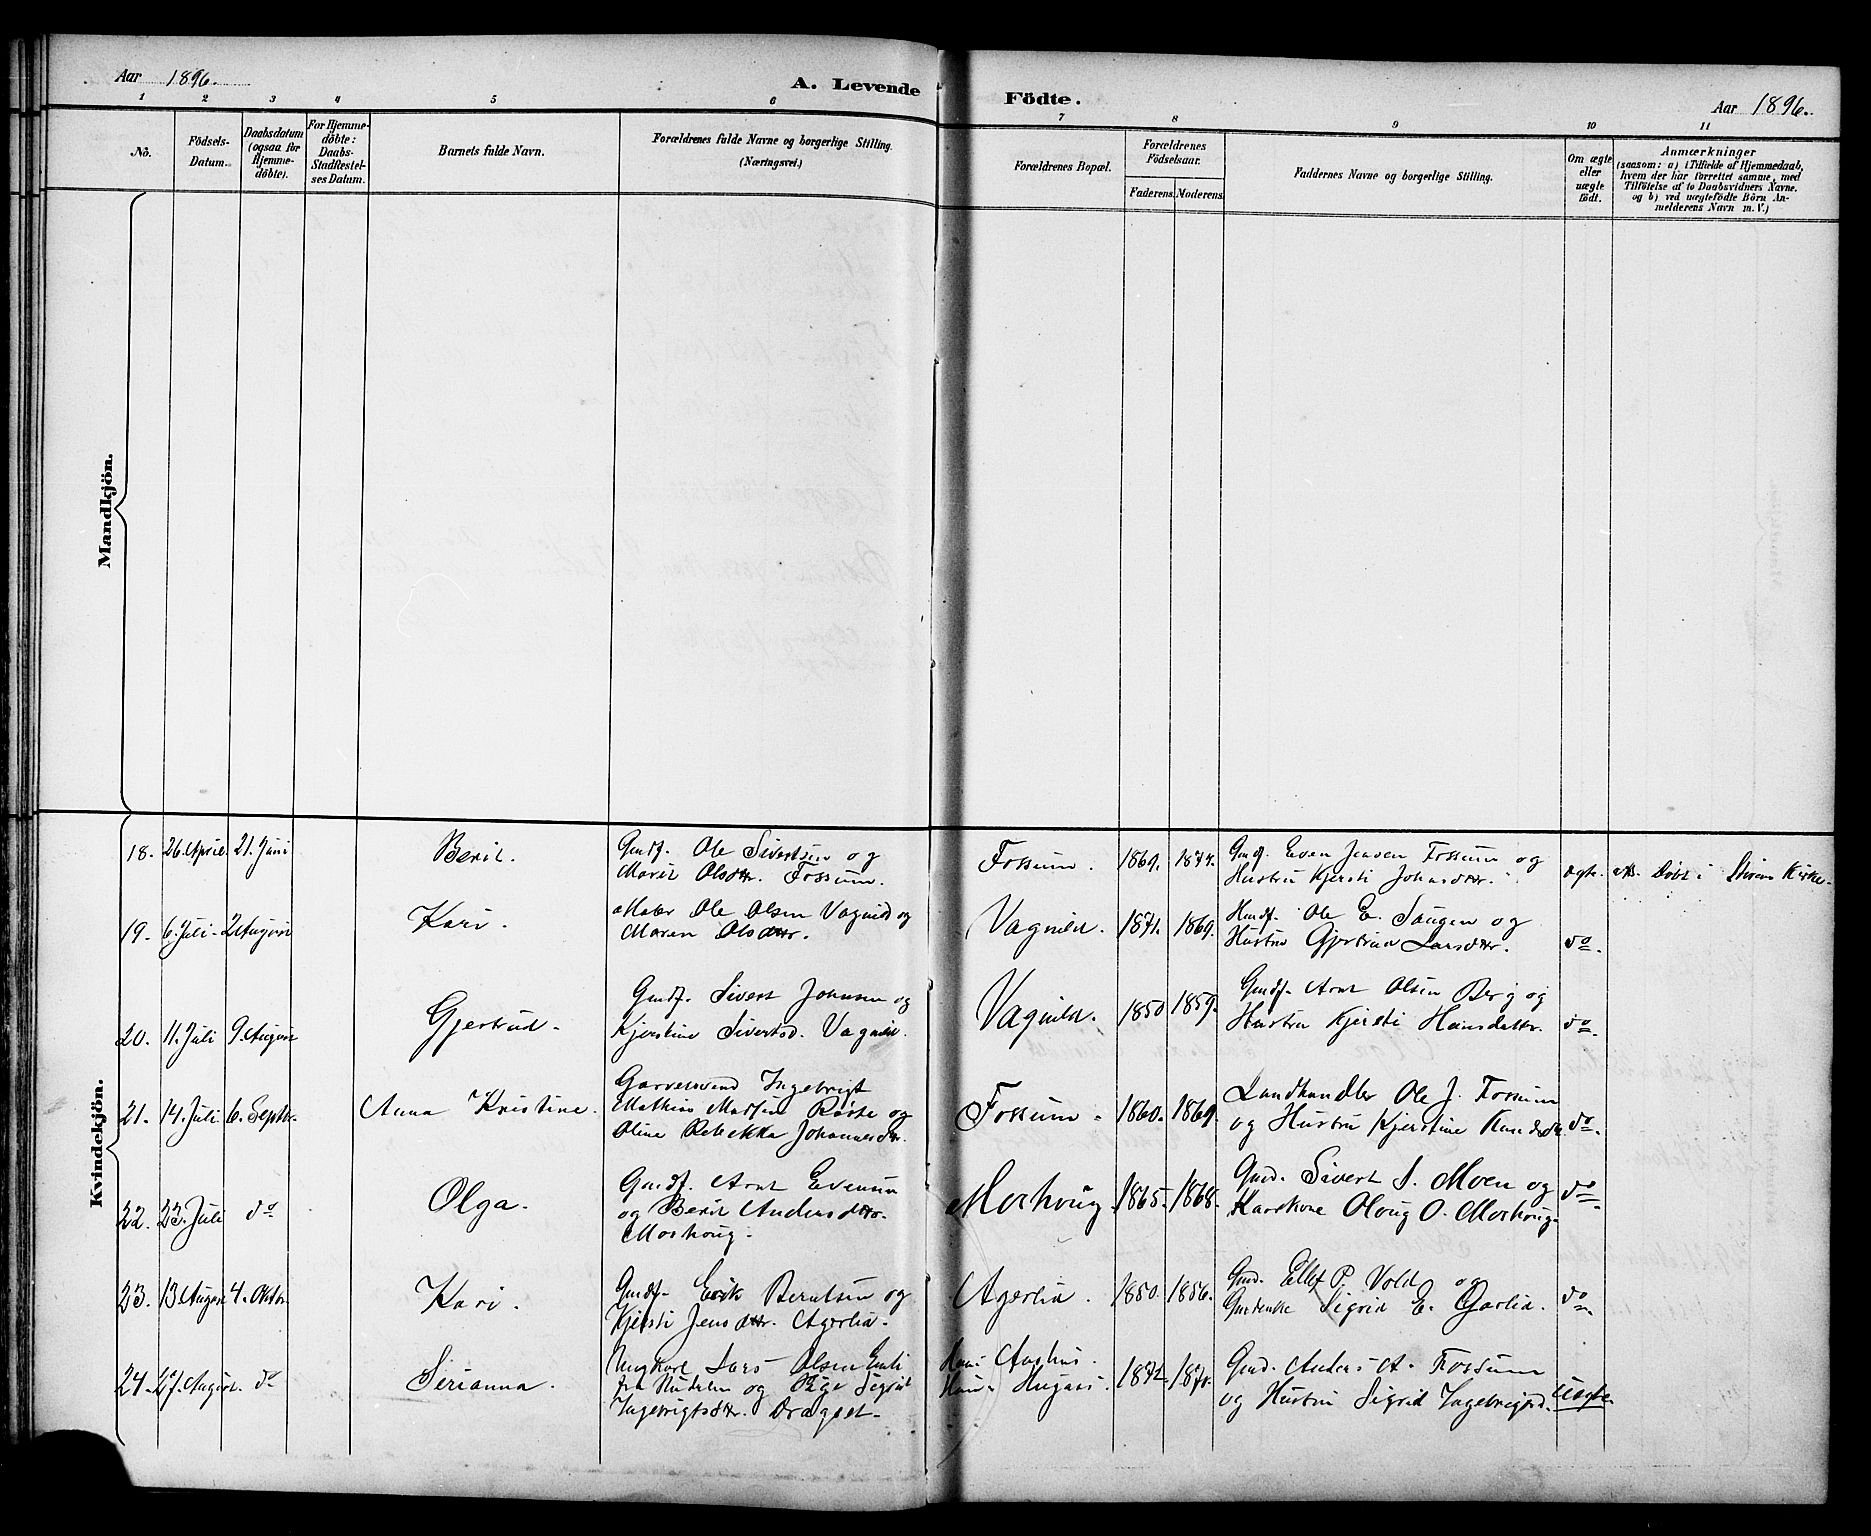 Aar 1896.
A. Levende Födte.
Aar 1896.
1 2 3 4 5 6 7 8 9 10 11
Nô.
Födsels-Datum.
Daabsdatum (ogsaa for Hjemmedöbte).
For Hjemmedöbte: Daabs-Stadfæstelses Datum.
Barnets fulde Navn.
Forældrenes fulde Navne og borgerlige Stilling.
(Næringsvei.)
Forældrenes Bopæl.
Forældrenes Födselsaar.
Faderens. Moderens.
Faddernes Navne og borgerlige Stilling.
Om ægte eller uægte födt.
Anmærkninger
(saasom: a) i Tilfælde af Hjemmedaab,
hvem der har forrettet samme, med
Tilföielse af to Daabsvidners Navne.
og b) ved uægtefödte Börn An-
melderens Navn m. V.)
Mandkjön.
Kvindekjön.
18. 26. April. 21. Juni
Berit.
Gmdf. Ole Sivertsen og
Marit Olsdtr. Fossum.
Fossum. 1869. 1874.
Gmd. Even Jensen Fossum og
Hustru Kjersti Johnsdtr.
ægte. Döbt i Störens Kirke.
19. 6. Juli 2 August
Kari.
Maler Ole Olsen Vagnild og
Maren Olsdtr.
Vagnild. 1871. 1869.
Ole E. Saugen og
Hustru Gjertrud Larsdtr.
do
20. 11. Juli 9. August
Gjertrud
Gmdf. Sivert Johnsen og
Kjerstine Sivertsd. Vagnild.
Vagnild. 1850 1859.
Gmdf. Arnt Olsen Berg og
Hustru Kjersti Hansdatter.
do
21. 14. Juli 6. Septbr.
Anna Kristine.
Garversvend Ingebrigt
Mathias Madsen og
Oline Rebekka Johannesdtr.
Fossum 1860. 1869.
Landhandler Ole J. Fossum
og Hustru Kjerstine
do
22. 23. Juli do
Olga.
Gmdf. Arnt Evensen
og Berit Andersdtr.
Moshoug.
Moshoug 1865. 1868.
Gmd. Sivert S. Moen og
Olaug O. Moshoug.
do
23. 13 August 4. Oktbr.
Kari.
Gmdf. Erik Berntsen og
Kjersti Jensdtr. Agerlid.
Agerlid. 1850. 1856.
Gmd. Ellef P. Vold og
Sigrid E. Garlid.
do
24. 27. August. do
Serianna.
Ungkarl Lars Olsen
fra og Pige Sigrid
Ingebrigtsdtr. Dragset.
Hans Aashus.
1872. 1870.
Gmd. Anders A. Fossum
og Hustru Sigrid Ingebrigtsd.
Uægte